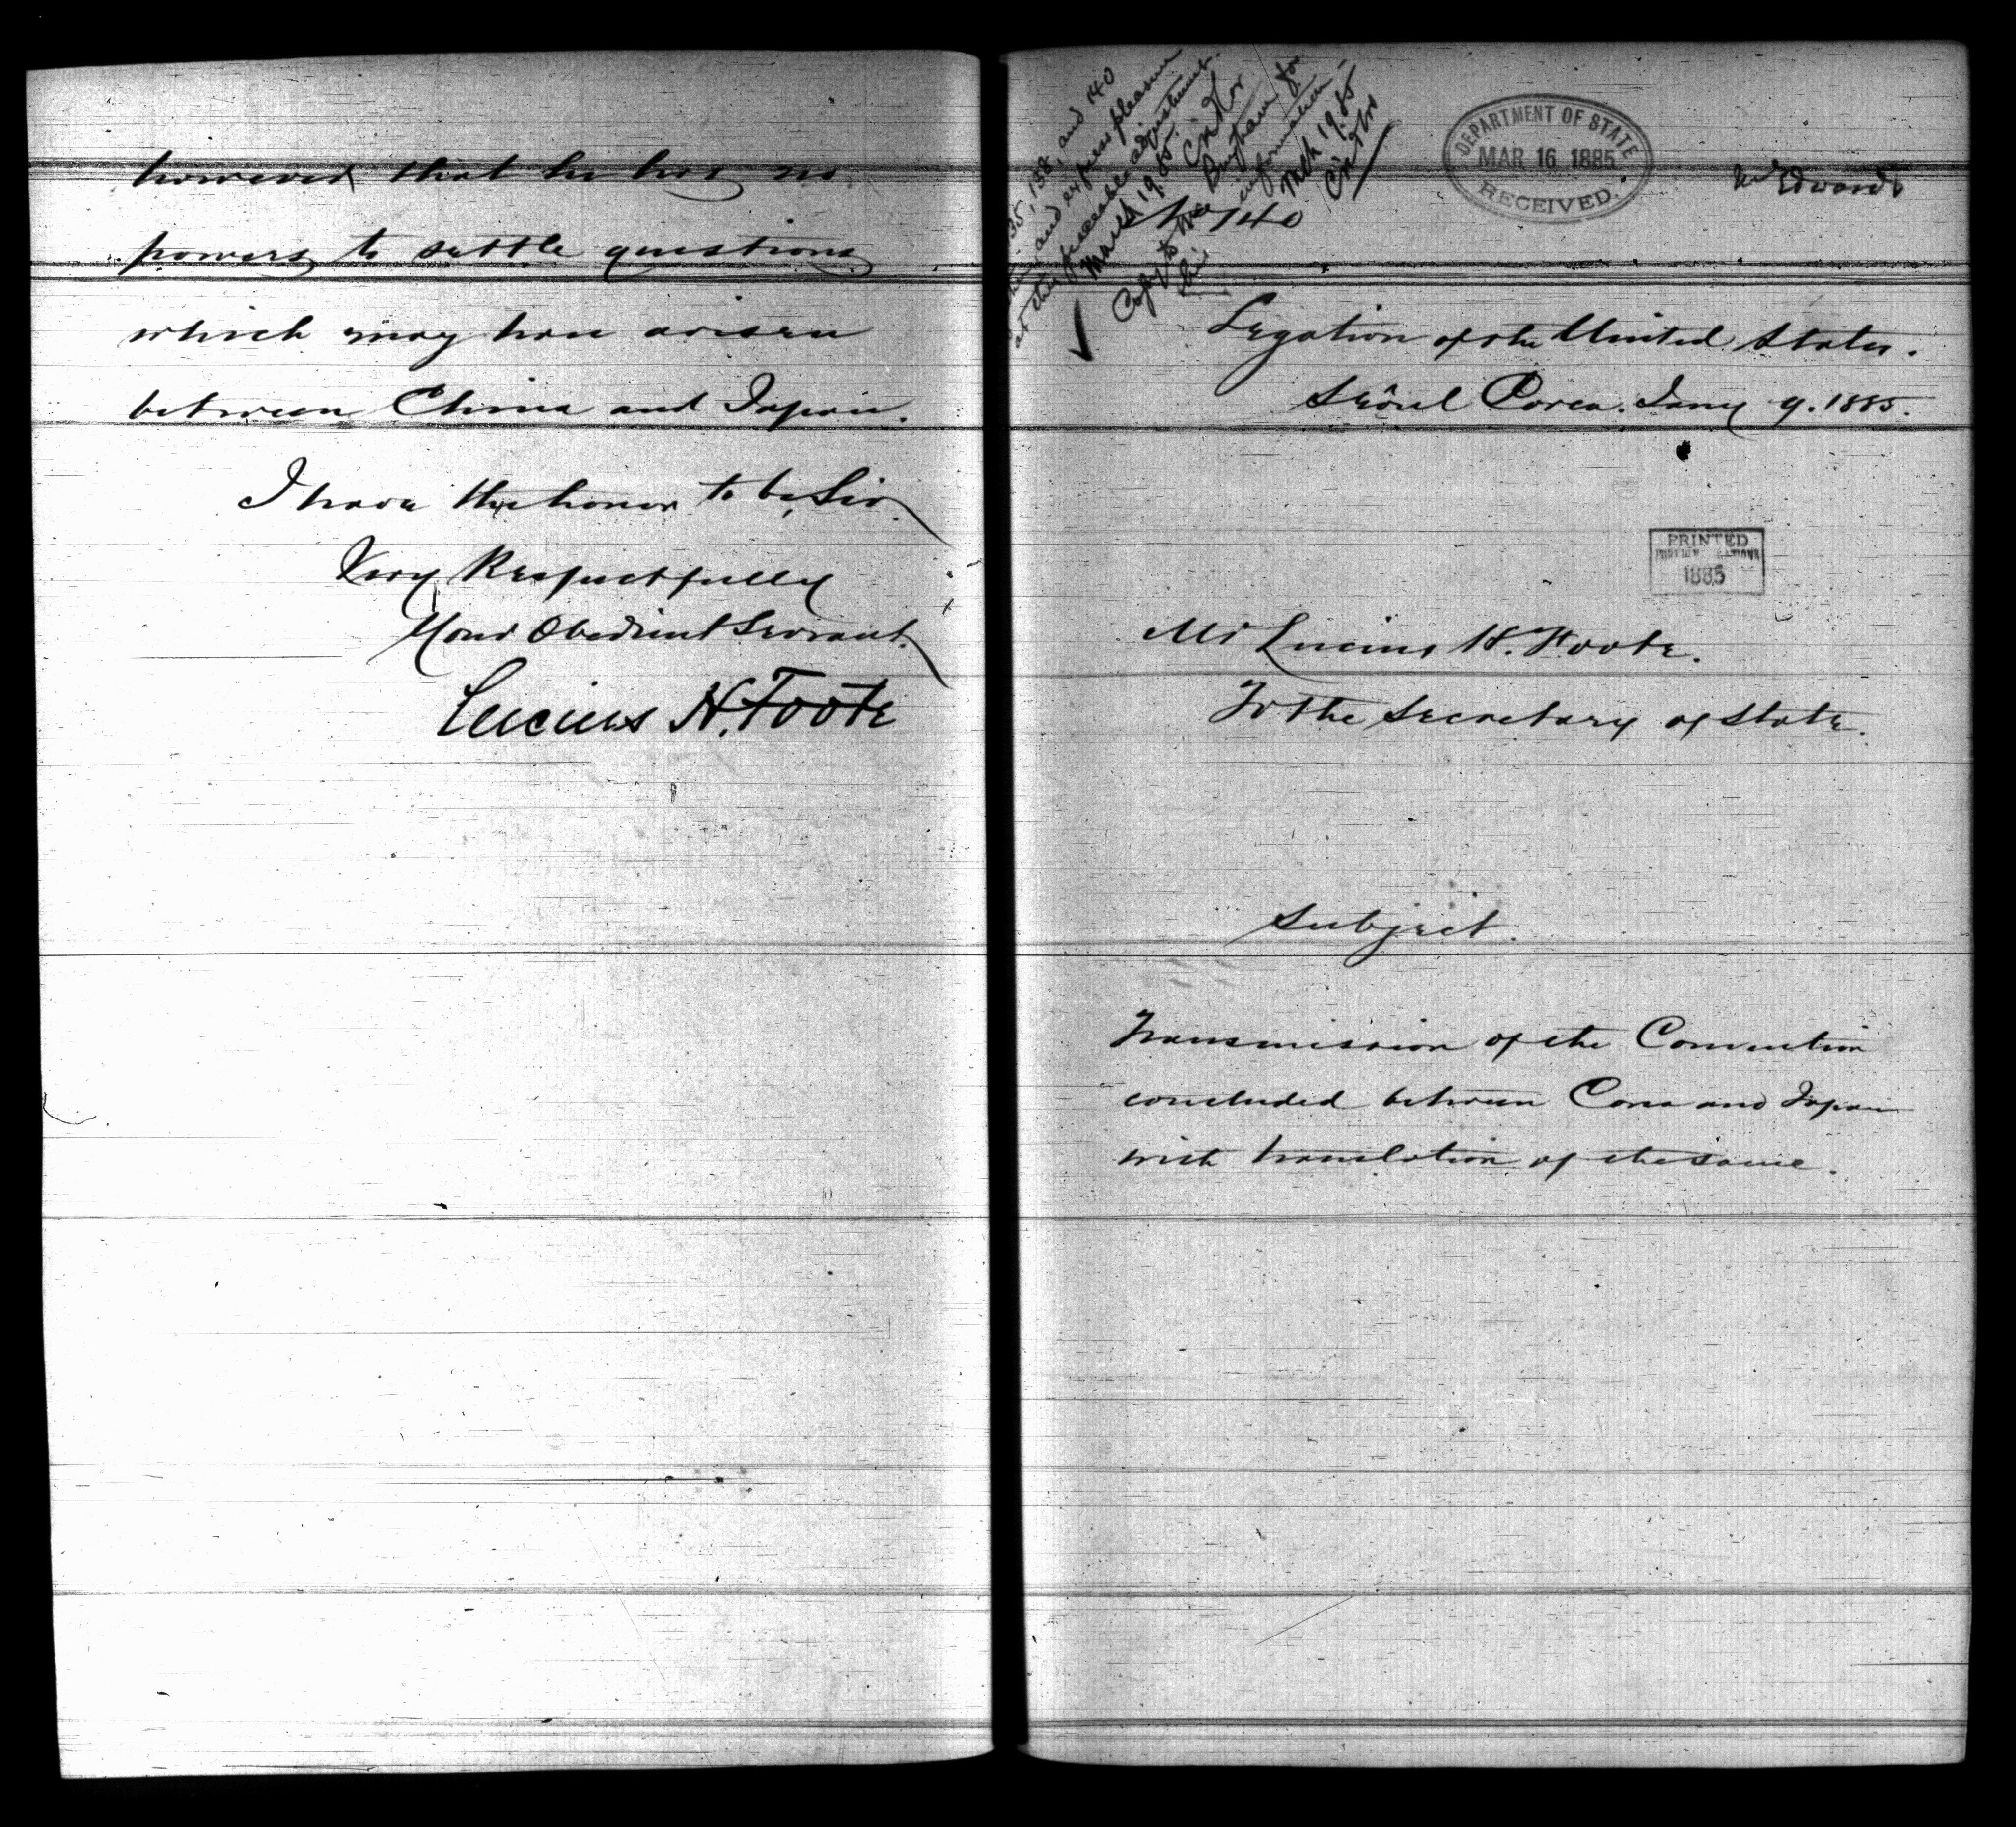 however that he has no
powers to settle questions
which may have arisen
between China and Japan.
I have the honor to be, Sir,
Very Respectfully
Your Obedient Servant.
Lucius H. Foote
35, 138, and 140
and express pleasure
at this peaceable adjustment.
March 19. 85
Copy to Mr Bingham for
his information
Mch 19, 85
DEPARTMENT OF STATE
MAR 16 1885
RECEIVED.
Mr Edwards
No 140
Legation of the United States.
Seôul Corea. Jany 9. 1885.
PRINTED
FOREIGN RELATIONS
1885
Mr Lucius H. Foote.
To the Secretary of State.
Subject.
Transmission of the Convention
concluded between Corea and Japan
with translation of the same.